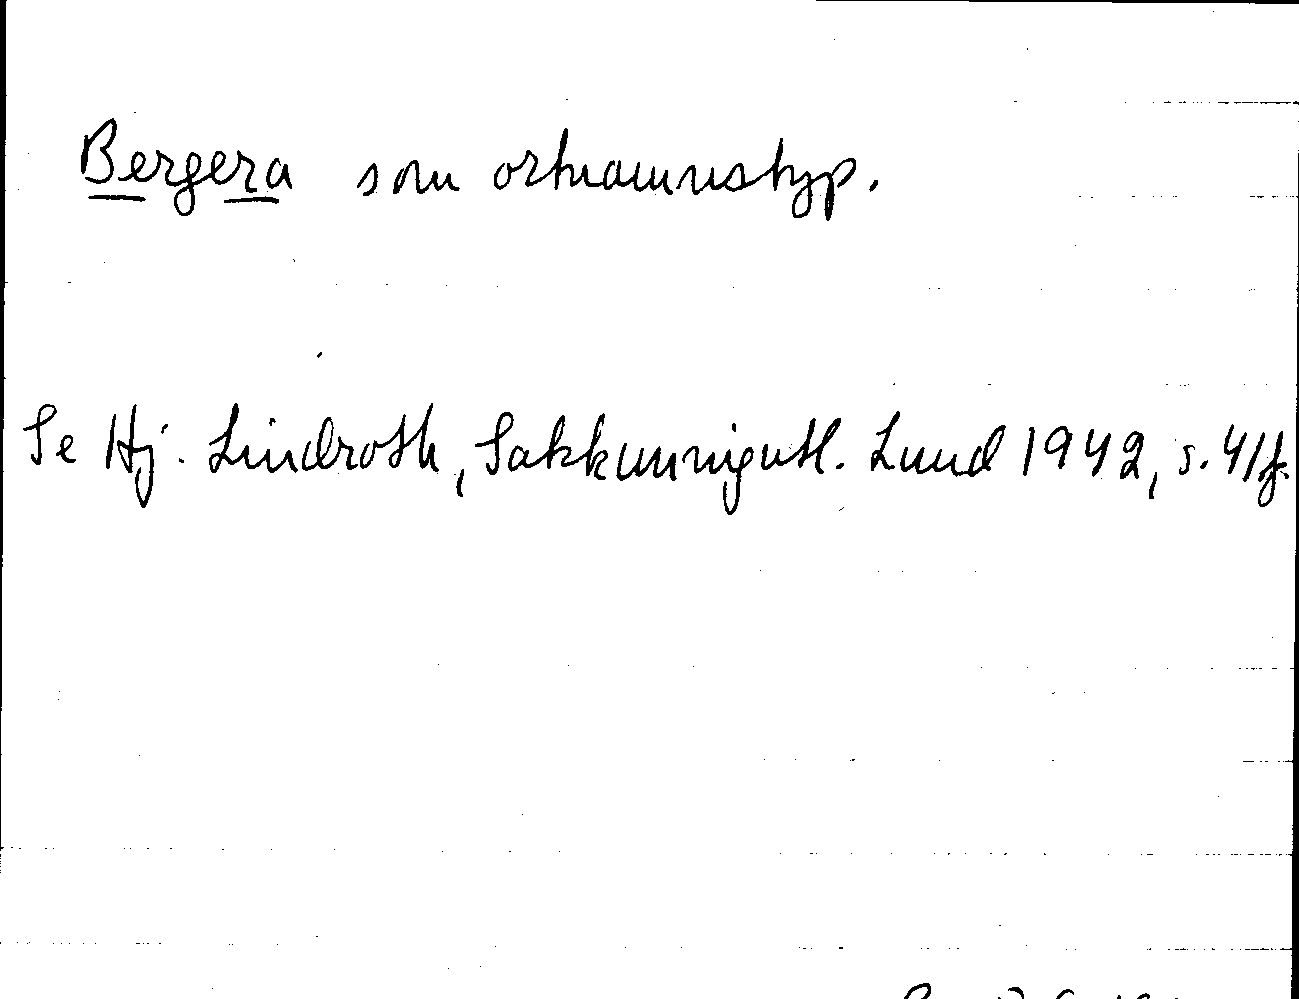 Bergera som ortnamnstyp.
Se Hj. Lindroth, Sakkunnigutl. Lund 1942, s. 41 f.